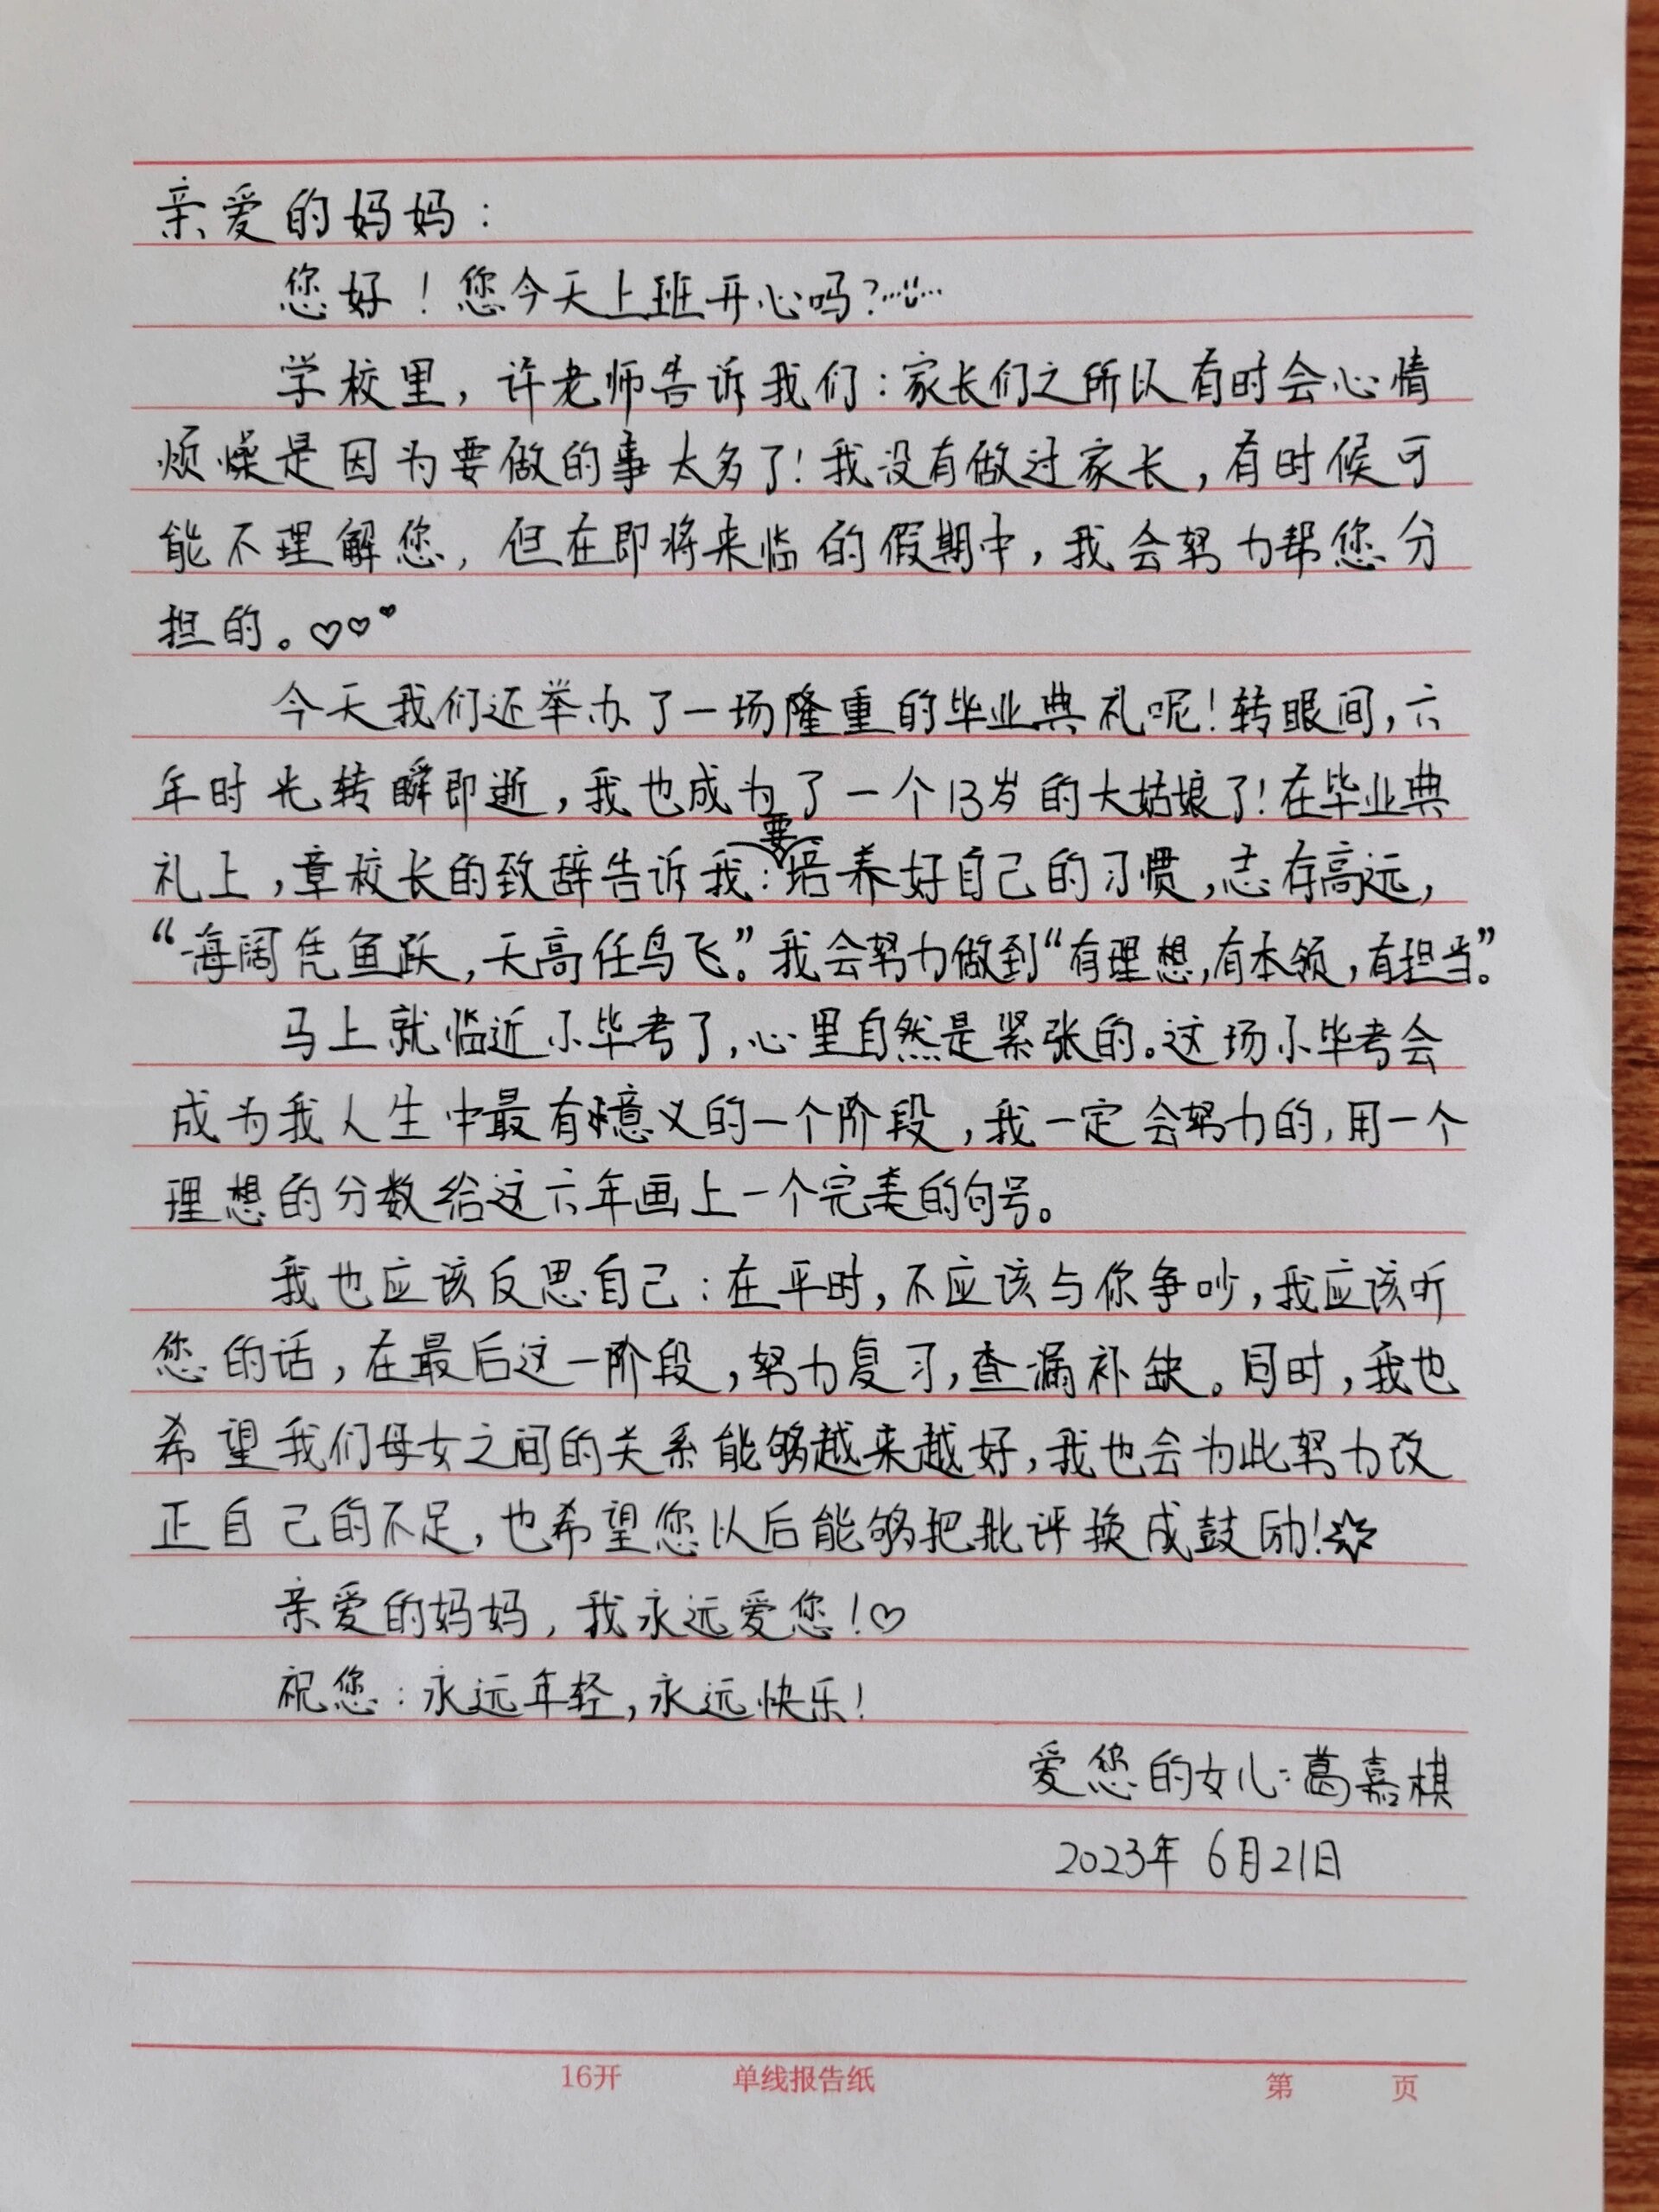 亲爱的妈妈：
您好！您今天上班开心吗？
学校里，许老师告诉我们：家长们之所以有时会心情
烦燥是因为要做的事太多了！我没有做过家长，有时候可
能不理解您，但在即将来临的假期中，我会努力帮您分
担的。♡♡♥
今天我们还举办了一场隆重的毕业典礼呢！转眼间，六
年时光转瞬即逝，我也成为了一个13岁的大姑娘了！在毕业典
礼上，章校长的致辞告诉我：要培养好自己的习惯，志存高远，
“海阔凭鱼跃，天高任鸟飞”。我会努力做到“有理想，有本领，有担当”。
马上就临近小毕考了，心里自然是紧张的。这场小毕考会
成为我人生中最有意义的一个阶段，我一定会努力的，用一个
理想的分数给这六年画上一个完美的句号。
我也应该反思自己：在平时，不应该与你争吵，我应该听
您的话，在最后这一阶段，努力复习，查漏补缺。同时，我也
希望我们母女之间的关系能够越来越好，我也会为此努力改
正自己的不足，也希望您以后能够把批评换成鼓励！☆
亲爱的妈妈，我永远爱您！♡
祝您：永远年轻，永远快乐！
爱您的女儿：葛嘉棋
2023年6月21日
16开 单线报告纸 第 页